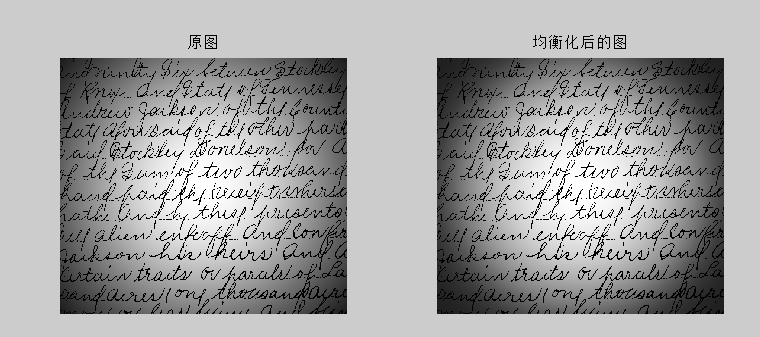 原图
均衡化后的图
and Ninety Six between Stockley
of Knox And State of Tennessee
Andrew Jackson of the County
State aforesaid of the other part
said Stockley Donelson for A
of the Sum of two thousand
hand paid the receipt
hath And by these presents
alien enfeoff And Confir
Jackson his heirs And A
Certain tracts or parcels of La
sand acres one thousand acre
and Ninety Six between Stockley
of Knox And State of Tennessee
Andrew Jackson of the County
State aforesaid of the other part
said Stockley Donelson for A
of the Sum of two thousand
hand paid the receipt
hath And by these presents
alien enfeoff And Confir
Jackson his heirs And A
Certain tracts or parcels of La
sand acres one thousand acre